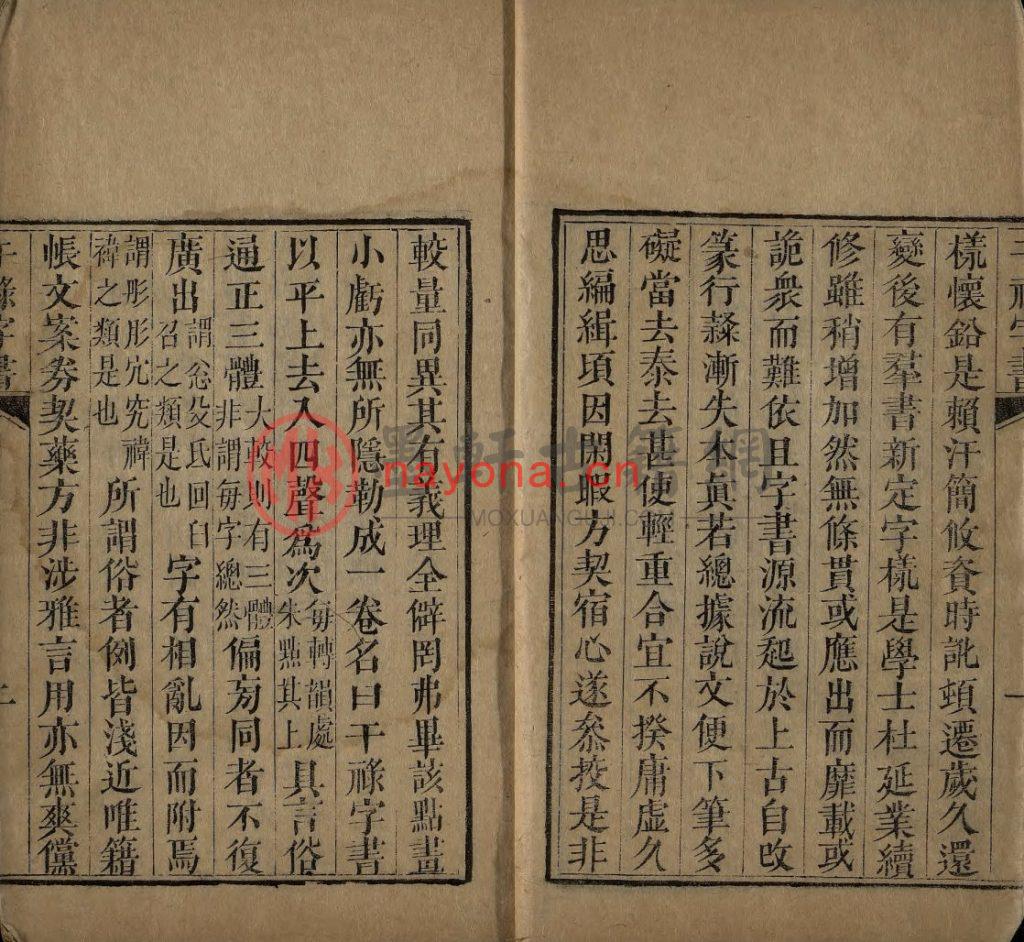 干祿字書
一
樣懷鉛是賴汗簡攸資時訛頓遷歲久還
變後有羣書新定字樣是學士杜延業續
修雖稍增加然無條貫或應出而靡載或
詭衆而難依且字書源流起於上古自改
篆行隸漸失本眞若總據說文便下筆多
礙當去泰去甚使輕重合宜不揆庸虛久
思編緝頃因閑暇方契宿心遂叅挍是非
較量同異其有義理全僻罔弗畢該點畫
小虧亦無所隱勒成一卷名曰干祿字書
以平上去入四聲爲次每轉韻處朱點其上具言俗
通正三體大較則有三體非謂每字總然偏旁同者不復
廣出謂忩殳氐回臼召之類是也字有相亂因而附焉
謂彤肜宄究禕褘之類是也所謂俗者例皆淺近唯籍
帳文案券契藥方非涉雅言用亦無爽儻
干祿字書
二
墨軒古籍網
nayona.cn